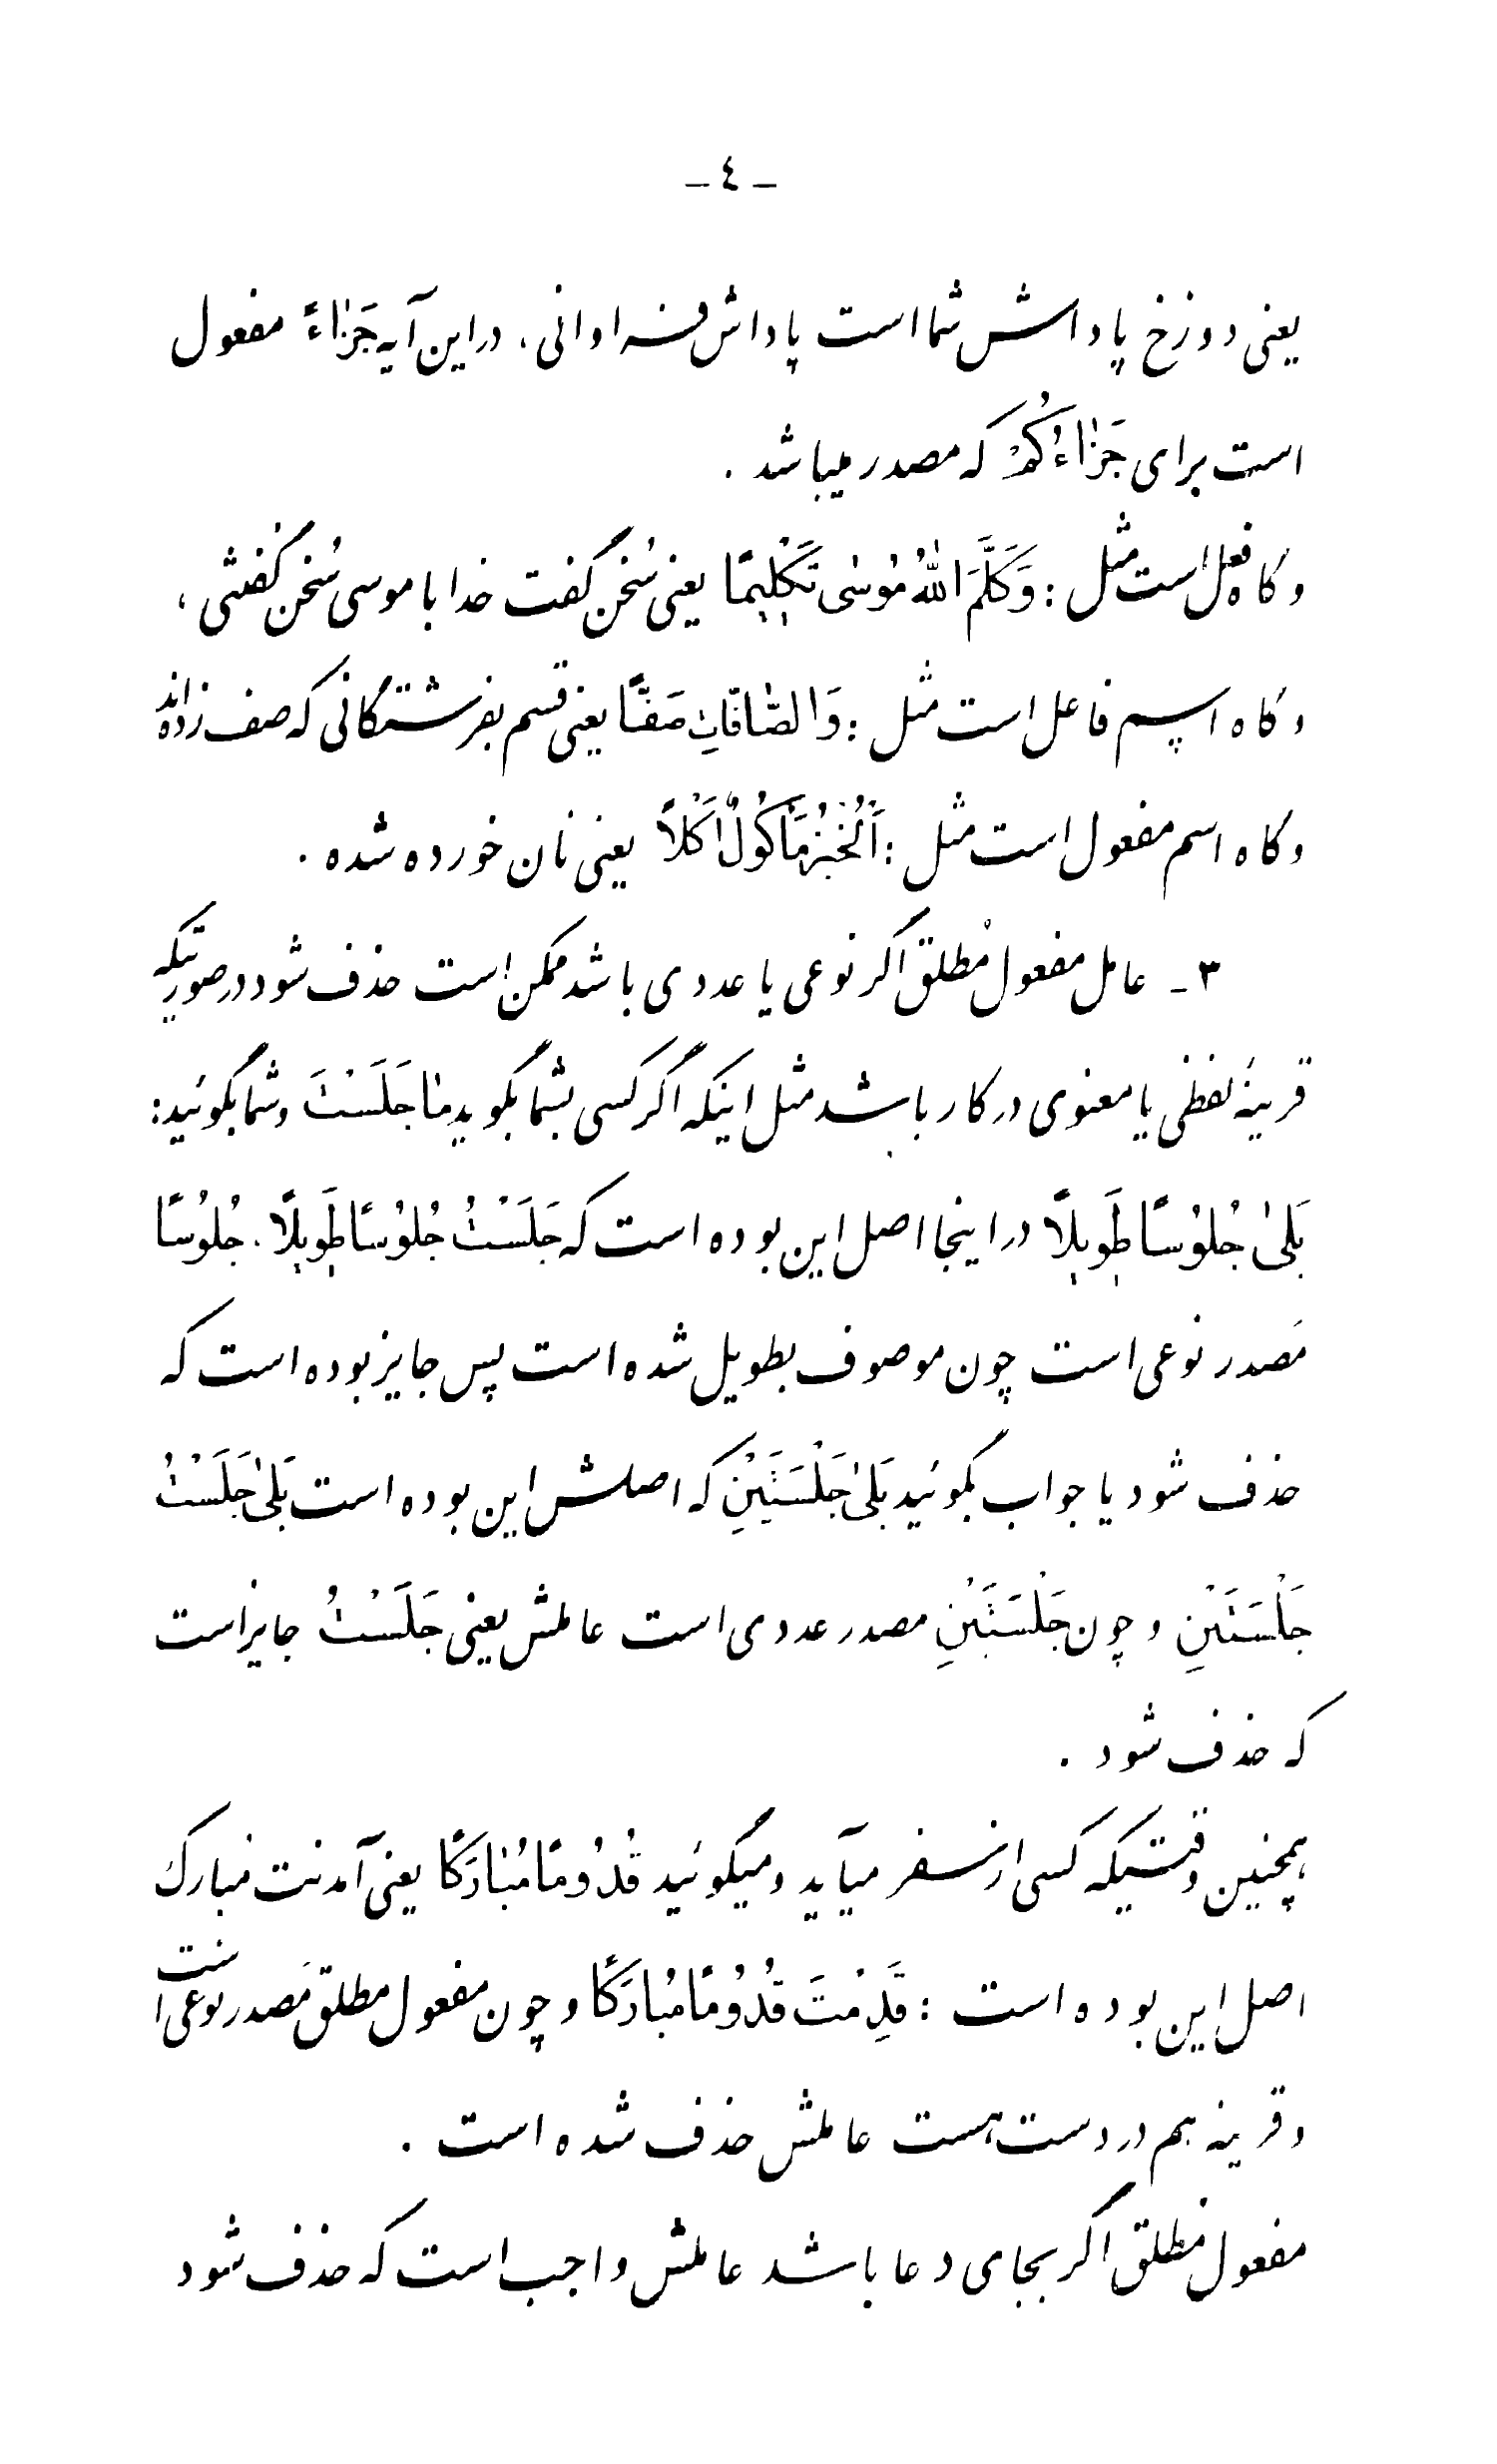 - ٤ -
یعنی دوزخ پاداش شما است پاداش فراوانی، در این آیه جَزٰاءً مفعول
است برای جَزٰاءُكُمْ که مصدر میباشد .
و گاه فعل است مثل : وَكَلَّمَ اللّٰهُ مُوْسٰى تَكْلِیْمًا یعنی سُخن گفت خدا با موسی سُخن گفتنی ،
و گاه اسم فاعل است مثل : وَالصّٰافّٰاتِ صَفًّا یعنی قسم بفرشتگانی که صف زده اند
و گاه اسم مفعول است مثل : اَلْخُبْزُ مَأْكُولٌ اَكْلاً یعنی نان خورده شده .
٣ - عامل مفعول مُطلق اگر نوعی یا عددی باشد ممکن است حذف شود در صورتیکه
قرینهٔ لفظی یا معنوی در کار باشد مثل اینکه اگر کسی بشما بگوید مٰا جَلَسْتَ و شما بگوئید :
بَلىٰ جُلُوْسًا طَوِیْلًا در اینجا اصل این بوده است که جَلَسْتُ جُلُوْسًا طَوِیْلًا . جُلُوْسًا
مَصدر نوعی است چون موصوف بطویل شده است پس جایز بوده است که
حذف شود یا جواب بگوئید بَلىٰ جَلْسَتَیْنِ که اصلش این بوده است بَلىٰ جَلَسْتُ
جَلْسَتَیْنِ و چون جَلْسَتَیْنِ مصدر عددی است عاملش یعنی جَلَسْتُ جایز است
که حذف شود .
همچنین وقتیکه کسی از سفر میآید و میگوئید قُدُوْمًا مُبٰارَكًا یعنی آمدنت مبارک
اصل این بوده است : قَدِمْتَ قُدُوْمًا مُبٰارَكًا و چون مفعول مطلق مَصدر نوعی است
و قرینه هم در دست هست عاملش حذف شده است .
مفعول مُطلق اگر بجای دعا باشد عاملش واجب است که حذف شود